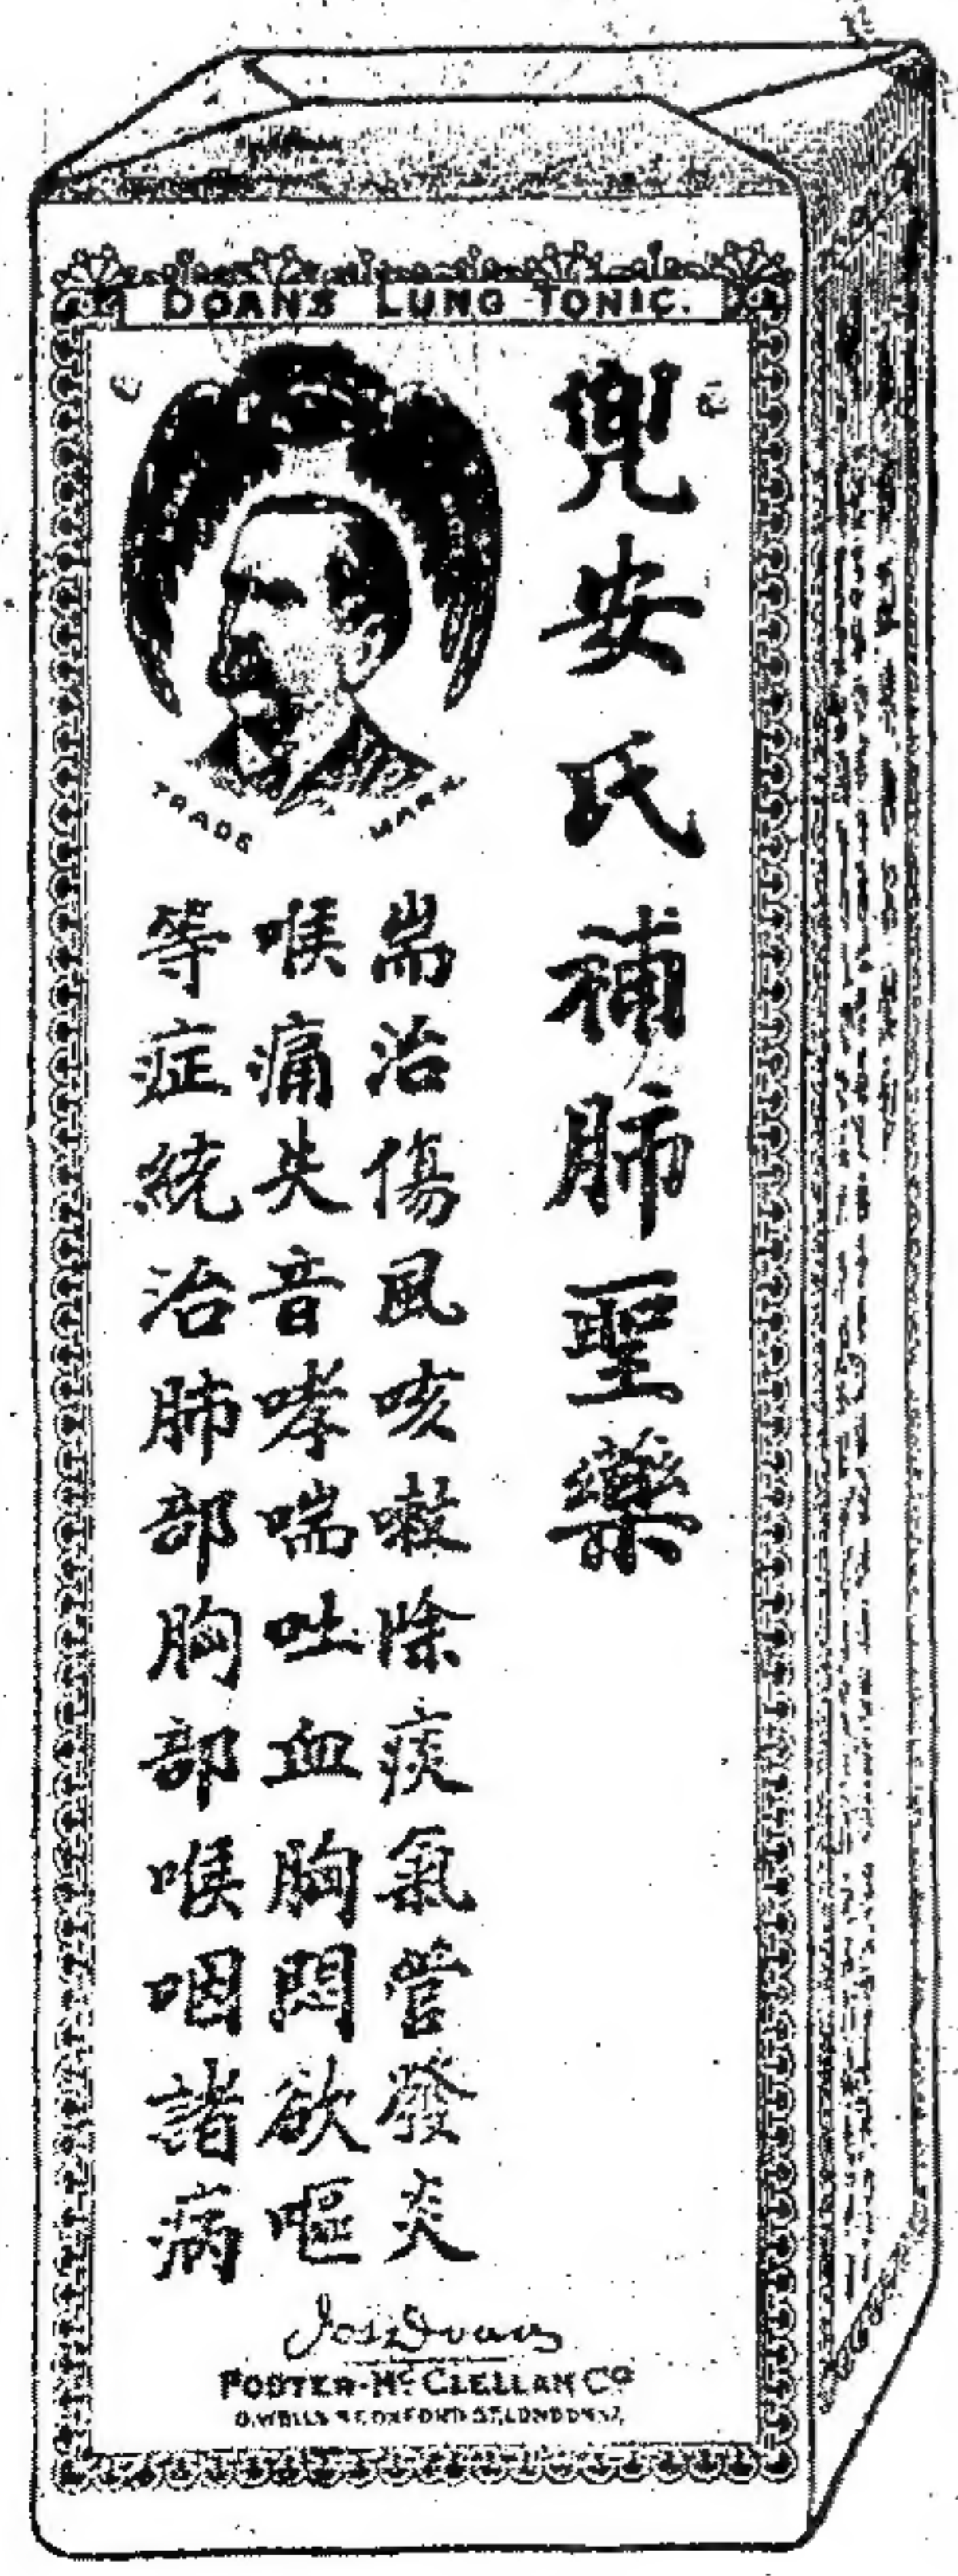 DOAN'S LUNG TONIC.
兜安氏補肺聖藥
TRADE MARK
耑治傷風咳嗽除痰氣管發炎
喉痛失音哮喘吐血胸悶欲嘔
等症統治肺部胸部喉咽諸病
Jas Doan
FOSTER-McCLELLAN Co
8, WELLS St OXFORD ST, LONDON